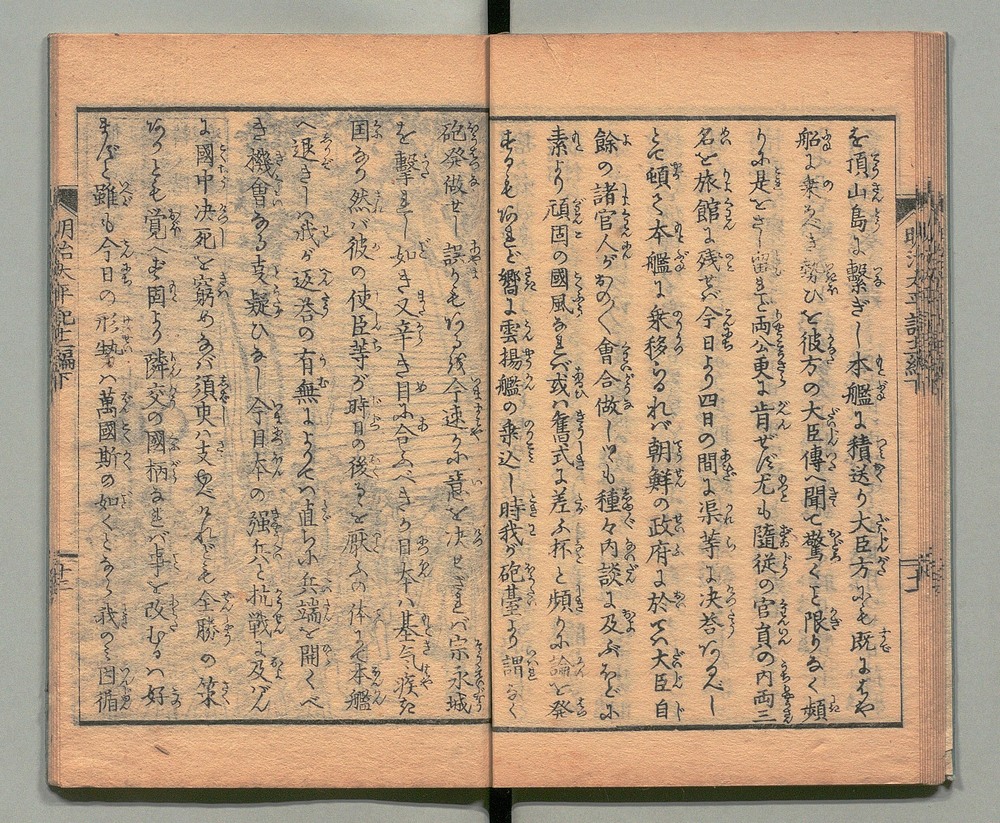 を頂山島に繋ぎし本艦に積送り大臣方にも既にはや
船に乗べき勢ひを彼方の大臣傳へ聞て驚くと限りなく頻
りに是をさし留れど両公更に肯ぜず尤も隨従の官員の内両三
名を旅館に残せバ今日より四日の間に渠等に决答ある
とて頓て本艦に乗移らるれバ朝鮮の政府に於てハ大臣自
餘の諸官人がおの〳〵會合做しとも種々内談に及ぶほどに
素より頑固の國風なれバ或ハ舊式に差ふ杯と頻りに論を発
するもあれど嚮に雲揚艦の乗込し時我が砲臺より謂なく
砲発做せし誤りもある故今速かに意を决せざれバ宗永城
を撃れし如き又辛き目に合ふべきか日本ハ甚気疾き
国なり然バ彼の使臣等が時日の後るを厭ふの体にて本艦
へ退きしハ我が返答の有無によりてハ直ちに兵端を開くべ
き機會なる支疑ひなし今日本の强兵と抗戦に及バん
に國中决死を窮めなバ須臾ハ支ゆべけれども全勝の策
ありとも覚へず固より隣交の國柄なれバ事を改むるハ好
まずと雖も今日の形勢ハ萬國斯の如くとなり我のミ因循
明治太平記十二編下
十二